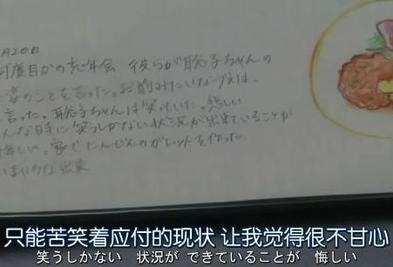 月20日
何度目かの忘年会 彼らが聡子ちゃんの
容姿のことを言った。お前みたいなブスは、
言った。聡子ちゃんは笑っていた。悲しい
んな時に笑うしかない状況が出来ていることが
悔しい。家でにんじんのガレットを作った
いまいちな出来
只能苦笑着应付的现状 让我觉得很不甘心
笑うしかない 状況が できていることが 悔しい